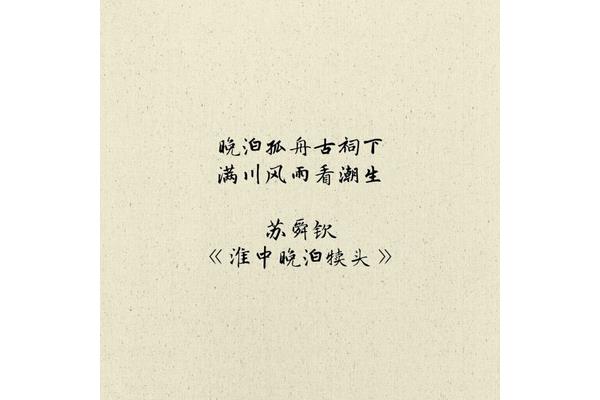 晚泊孤舟古祠下
满川风雨看潮生
苏舜钦
《淮中晚泊犊头》